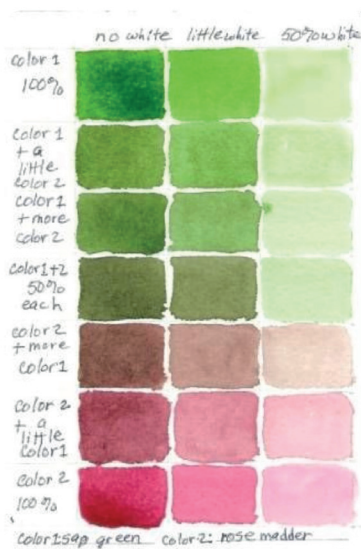 no white little white 50% white
color 1
100%
color 1
+ a
little
color 2
color 1
+ more
color 2
color 1+2
50%
each
color 2
+ more
color 1
color 2
+ a
little
color 1
color 2
100%
color 1: sap green color 2: rose madder